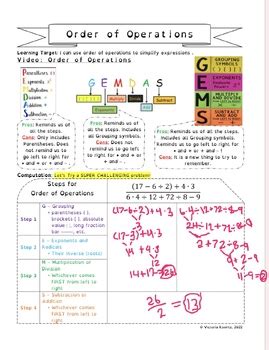 Order of Operations
Learning Target: I can use order of operations to simplify expressions.
Video: Order of Operations
Parentheses
Exponents
Multiplication
Division
Addition
Subtraction
GEMDAS
Multiply
Divide
Add
Subtract
G
E
M
S
GROUPING SYMBOLS
EXPONENTS
MULTIPLY AND DIVIDE
AND ADD
Pros: Reminds us of all the steps.
Cons: Only includes Parentheses. Does not remind us to go left to right for × and ÷ or + and -.
Pros: Reminds us of all the steps. Includes all Grouping symbols.
Cons: Does not remind us to go left to right for × and ÷ or + and -.
Pros: Reminds us of all the steps. Includes all Grouping symbols. Reminds us to go left to right for × and ÷ or + and -.
Cons: It is a new thing to try to remember.
Computation: Let's Try a SUPER CHALLENGING problem!
Steps for
Order of Operations
(17 − 6 ÷ 2) + 4 · 3
6 · 4 ÷ 12 + 72 ÷ 8 − 9
Step 1
G - Grouping
• parentheses ( ), brackets [ ], absolute value | |, long fraction bar
Step 2
E - Exponents and Radicals
• Their inverse (roots)
Step 3
M - Multiplication or Division
• Whichever comes FIRST from left to right
Step 4
S - Subtraction or Addition
• Whichever comes FIRST from left to right
(17-6÷2)+4·3
(17-3)+4·3
14+4·3
14+12=26
6·4÷12+72÷8-9
24÷12+72÷8-9
2+72÷8-9
2+9-9
11-9=2
26
2
=13